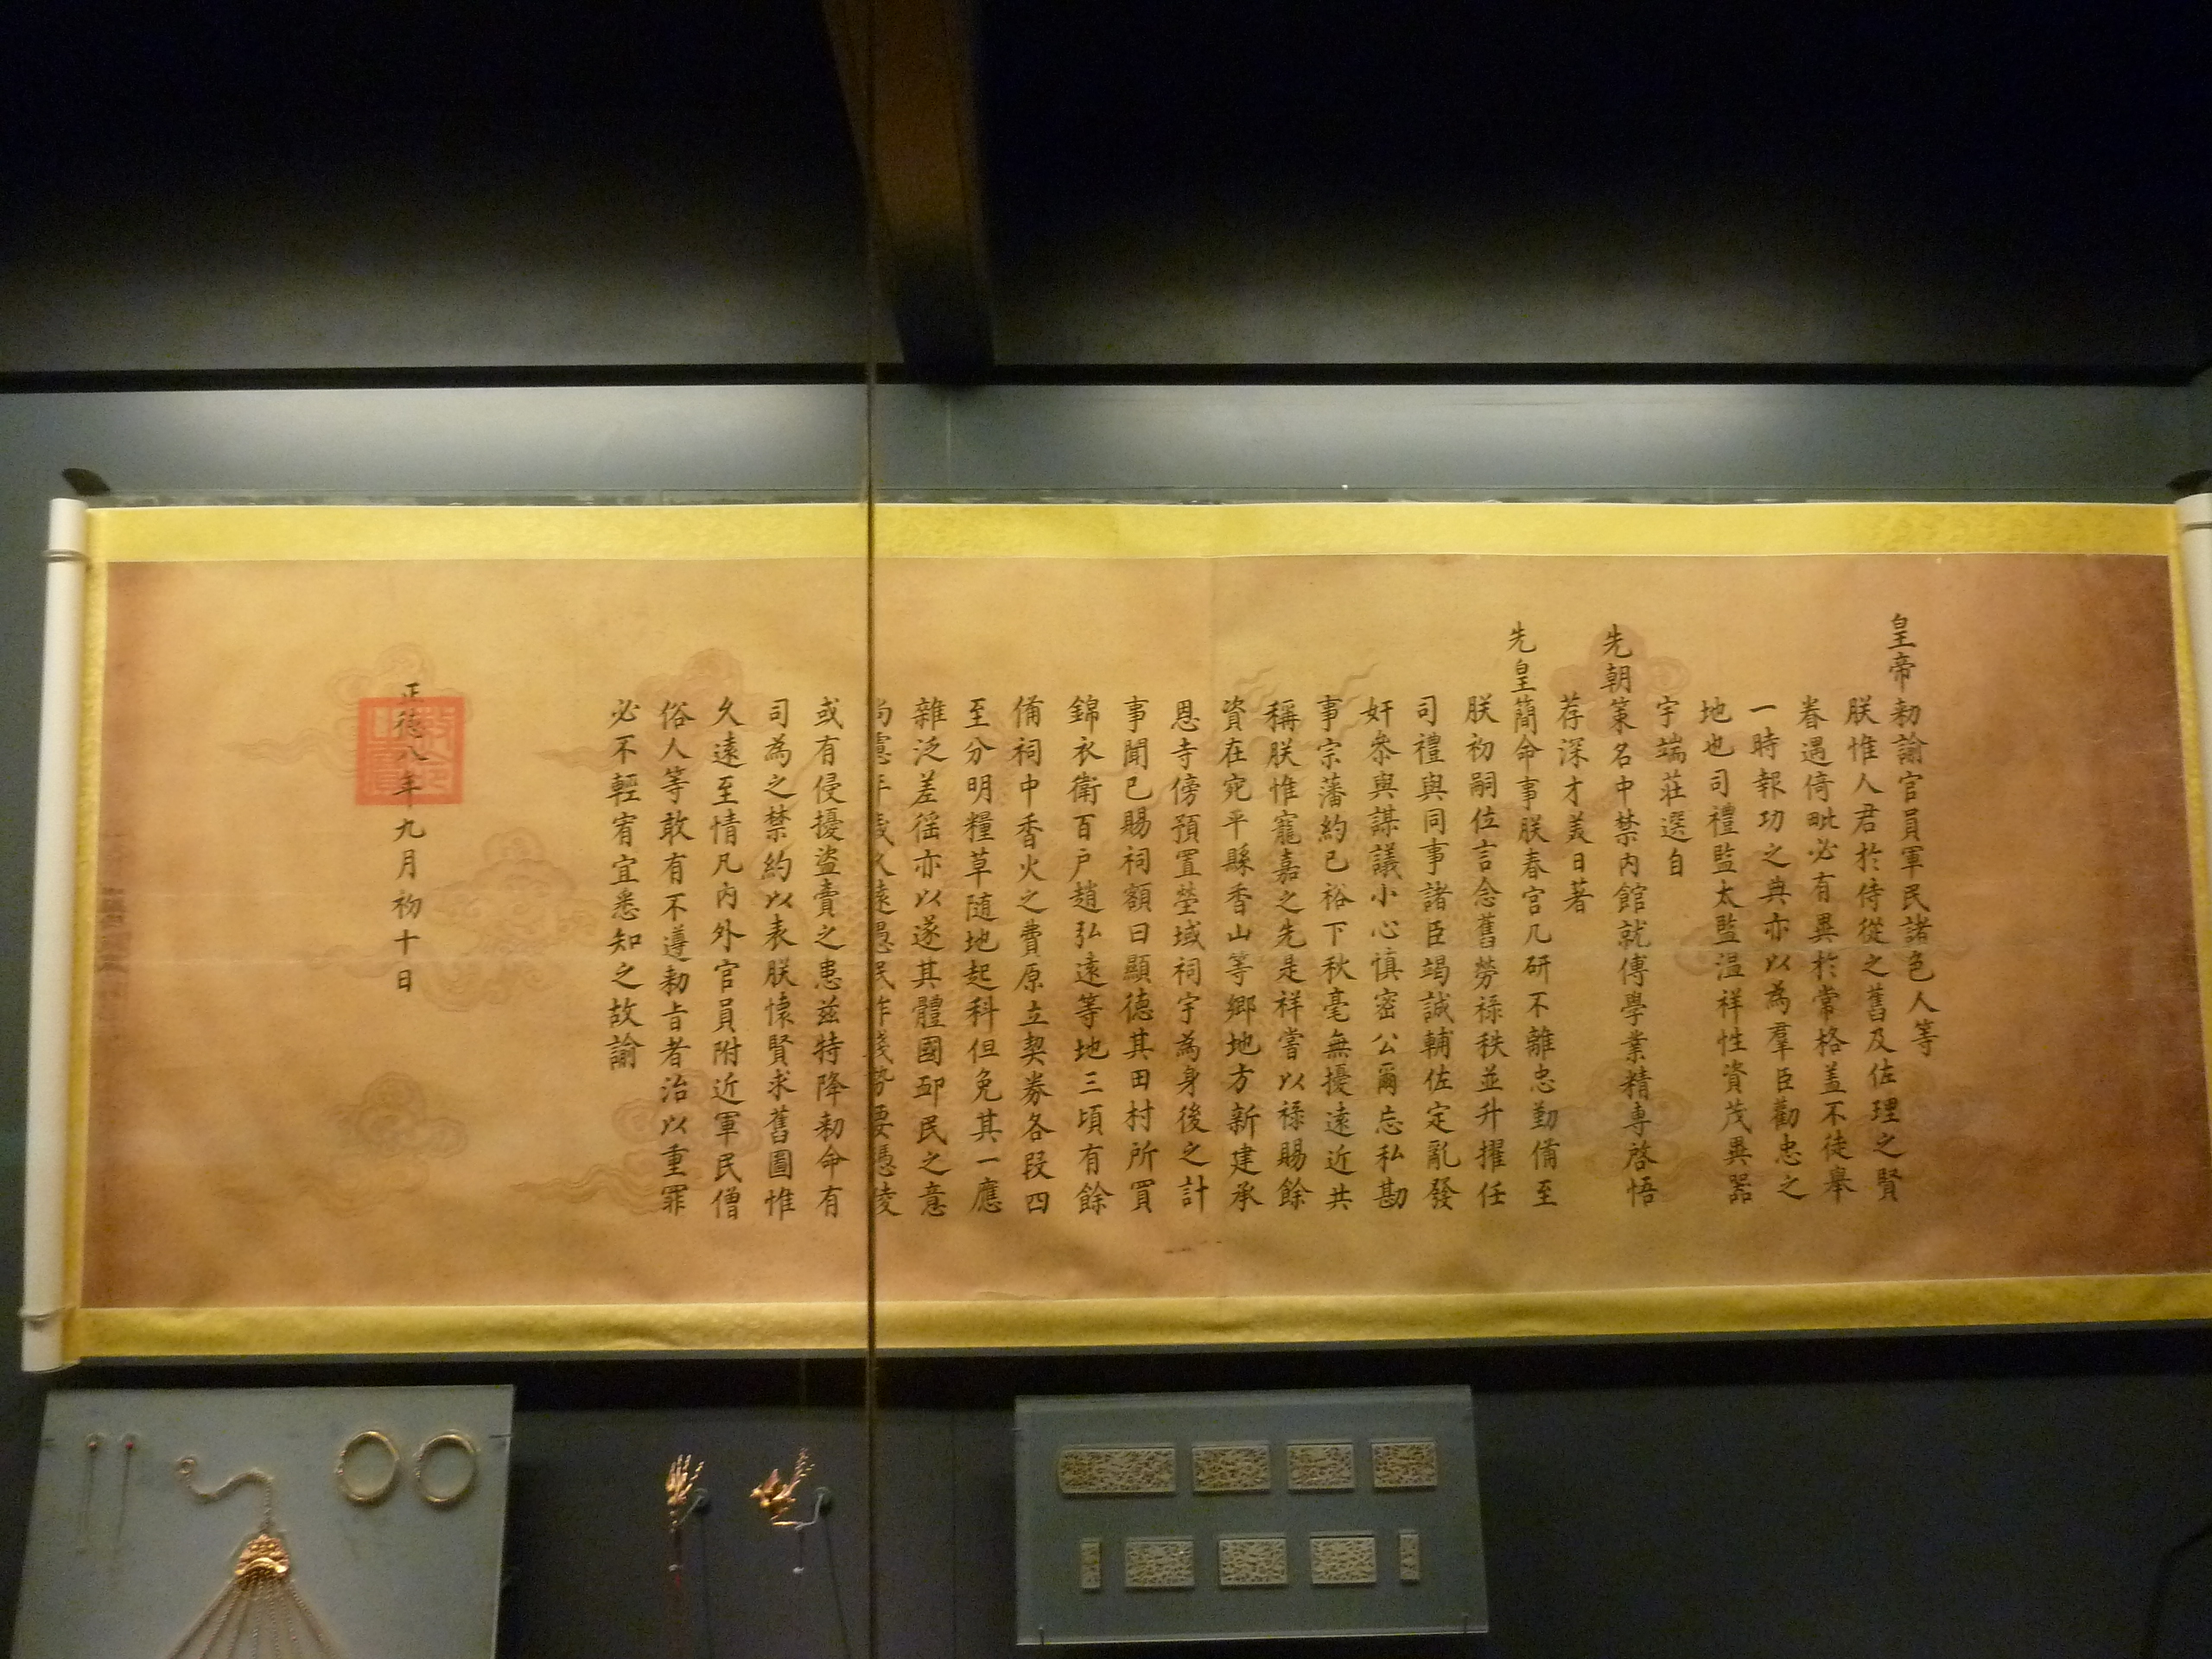 皇帝勅諭官員軍民諸色人等
朕惟人君於侍從之舊及佐理之賢
眷遇倚毗必有異於常格盖不徒舉
一時報功之典亦以為羣臣勸忠之
地也司禮監太監温祥性資茂異器
宇端莊選自
先朝策名中禁内館就傅學業精專啓悟
荐深才美日著
先皇簡命事朕春宫几研不離忠勤備至
朕初嗣位言念舊勞禄秩並升擢任
司禮與同事諸臣竭誠輔佐定亂發
奸叅與謀議小心慎密公爾忘私勘
事宗藩約已裕下秋毫無擾遠近共
稱朕惟寵嘉之先是祥嘗以禄賜餘
資在宛平縣香山等鄉地方新建承
恩寺傍預置塋域祠宇為身後之計
事聞已賜祠額曰顯德其田村所買
錦衣衛百户趙弘遠等地三頃有餘
備祠中香火之費原立契券各段四
至分明糧草随地起科但免其一應
雜泛差徭亦以遂其體國邺民之意
尚慮年歲久遠愚民作踐勢要憑陵
或有侵擾盗賣之患兹特降勅命有
司為之禁約以表朕懐賢求舊圖惟
久遠至情凡内外官員附近軍民僧
俗人等敢有不遵勅旨者治以重罪
必不輕宥宜悉知之故諭
正德八年九月初十日